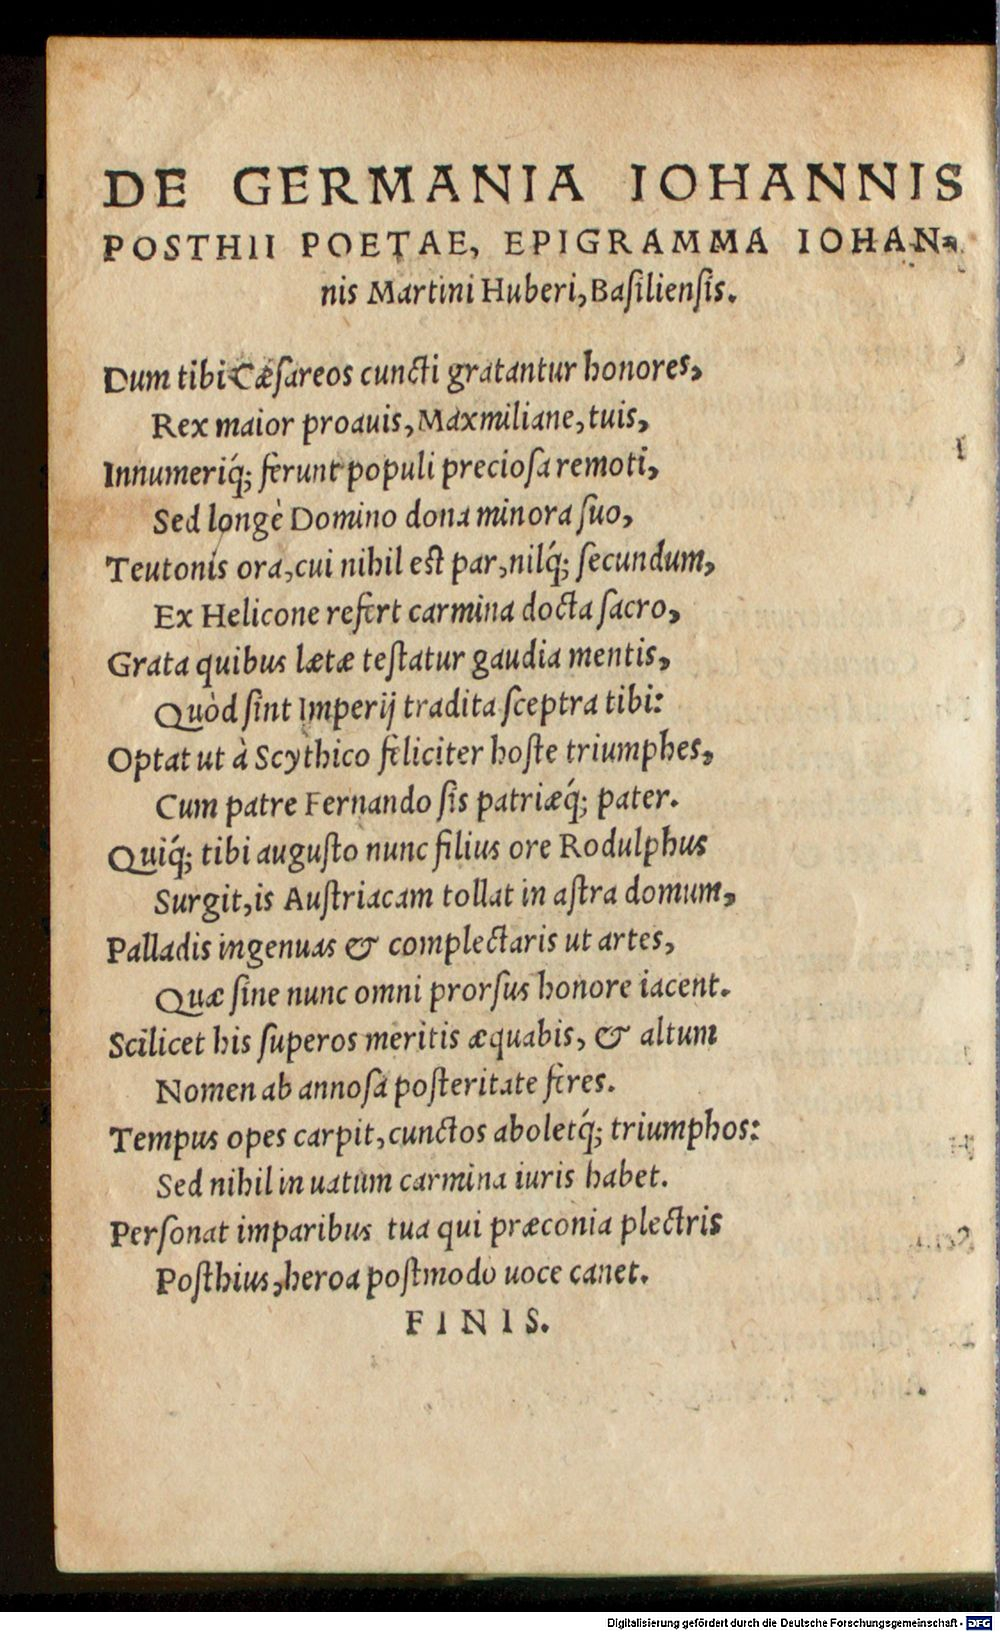 DE GERMANIA IOHANNIS
POSTHII POETAE, EPIGRAMMA IOHAN-
nis Martini Huberi, Baſilienſis.
Dum tibi Cæſareos cuncti gratantur honores,
Rex maior proauis, Maxmiliane, tuis,
Innumeriq́; ferunt populi precioſa remoti,
Sed longè Domino dona minora ſuo,
Teutonis ora, cui nihil est par, nilq́; ſecundum,
Ex Helicone refert carmina docta ſacro,
Grata quibus lætæ teſtatur gaudia mentis,
Quòd ſint Imperij tradita ſceptra tibi:
Optat ut à Scythico feliciter hoſte triumphes,
Cum patre Fernando ſis patriæq́; pater.
Quiq́; tibi auguſto nunc filius ore Rodulphus
Surgit, is Auſtriacam tollat in aſtra domum,
Palladis ingenuas & complectaris ut artes,
Quæ ſine nunc omni prorſus honore iacent.
Scilicet his ſuperos meritis æquabis, & altum
Nomen ab annoſa poſteritate feres.
Tempus opes carpit, cunctos aboletq́; triumphos:
Sed nihil in uatum carmina iuris habet.
Perſonat imparibus tua qui præconia plectris
Poſthius, heroa poſtmodo uoce canet.
FINIS.
Digitalisierung gefördert durch die Deutsche Forschungsgemeinschaft - DFG